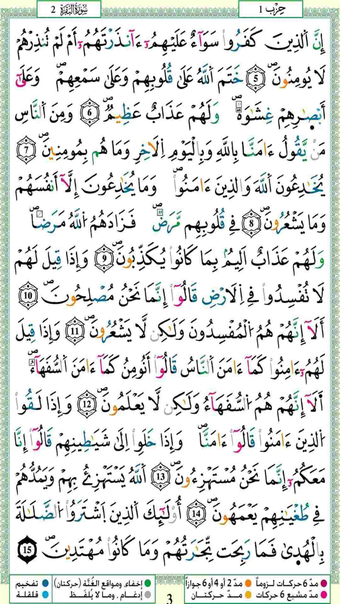 حزب 1
سورة البقرة 2
إِنَّ اَ۬لذِينَ كَفَرُواْ سَوَآءٌ عَلَيْهِمُۥٓ ءَآنذَرْتَهُمُۥٓ أَمْ لَمْ تُنذِرْهُمْ
لَا يُومِنُونَۖ 5 خَتَمَ اَ۬للَّهُ عَلَىٰ قُلُوبِهِمْ وَعَلَىٰ سَمْعِهِمْۖ وَعَلَىٰٓ
أَبْصٰ۪رِهِمْ غِشَٰوَةٞۖ وَلَهُمْ عَذَابٌ عَظِيمٞۖ 6 وَمِنَ اَ۬لنَّاسِ
مَنْ يَّقُولُ ءَامَنَّا بِاللَّهِ وَبِالْيَوْمِ اِ۬لَاخِرِ وَمَا هُم بِمُومِنِينَۖ 7
يُخَٰدِعُونَ اَ۬للَّهَ وَالذِينَ ءَامَنُواْۖ وَمَا يُخَٰدِعُونَ إِلَّآ أَنفُسَهُمْ
وَمَا يَشْعُرُونَۖ 8 فِے قُلُوبِهِم مَّرَضٞ فَزَادَهُمُ اُ۬للَّهُ مَرَضاٗۖ
وَلَهُمْ عَذَابٌ اَلِيمُۢ بِمَا كَانُواْ يُكَذِّبُونَۖ 9 وَإِذَا قِيلَ لَهُمْ
لَا تُفْسِدُواْ فِے اِ۬لَارْضِ قَالُوٓاْ إِنَّمَا نَحْنُ مُصْلِحُونَۖ 10
أَلَآ إِنَّهُمْ هُمُ اُ۬لْمُفْسِدُونَ وَلَٰكِن لَّا يَشْعُرُونَۖ 11 وَإِذَا قِيلَ
لَهُمُۥٓ ءَامِنُواْ كَمَآ ءَامَنَ اَ۬لنَّاسُ قَالُوٓاْ أَنُومِنُ كَمَآ ءَامَنَ اَ۬لسُّفَهَآءُۖ
أَلَآ إِنَّهُمْ هُمُ اُ۬لسُّفَهَآءُ وَلَٰكِن لَّا يَعْلَمُونَۖ 12 وَإِذَا لَقُواْ
اُ۬لذِينَ ءَامَنُواْ قَالُوٓاْ ءَامَنَّاۖ وَإِذَا خَلَوِاْ اِلَىٰ شَيَٰطِينِهِمْ قَالُوٓاْ إِنَّا
مَعَكُمُۥٓ إِنَّمَا نَحْنُ مُسْتَهْزِءُونَۖ 13 اَ۬للَّهُ يَسْتَهْزِۓُ بِهِمْ وَيَمُدُّهُمْ
فِے طُغْيَٰنِهِمْ يَعْمَهُونَۖ 14 أُوْلَٰٓئِكَ اَ۬لذِينَ اَ۪شْتَرَوُاْ اُ۬لضَّلَٰلَةَ
بِالْهُد۪ىٰ فَمَا رَبِحَت تِّجَٰرَتُهُمْ وَمَا كَانُواْ مُهْتَدِينَۖ 15
مدّ 6 حركات لزوماً مدّ 2 أو 4 أو 6 جوازاً إخفاء ومواقع الغُنَّة (حركتان) تفخيم
مدّ مشبع 6 حركات مدّ حركتان إدغام . وما لا يُلفَظ قلقلة
3